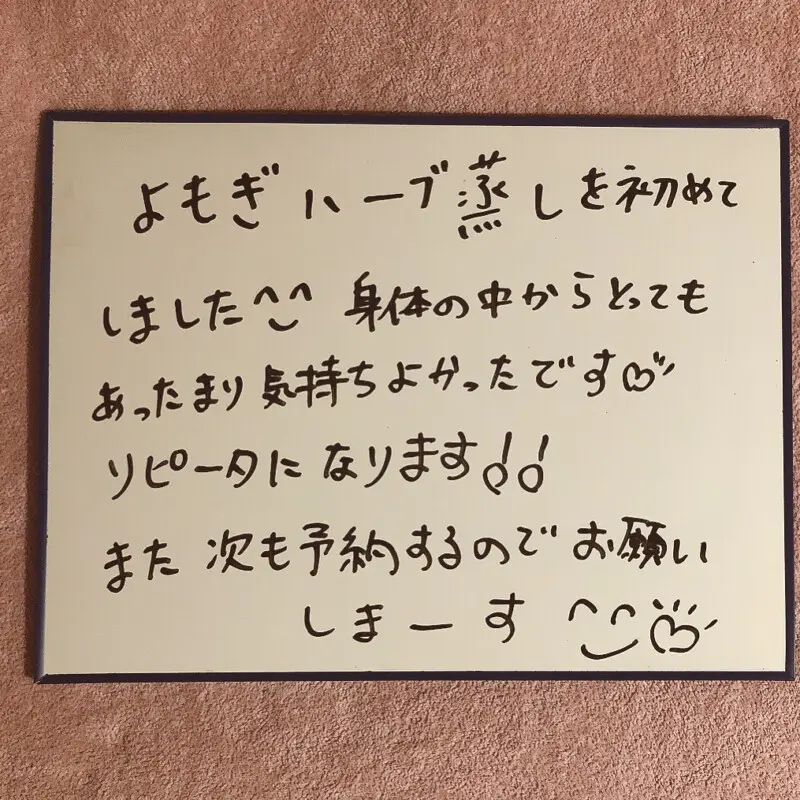 よもぎハーブ蒸しを初めて
しました^‿^ 身体の中からとっても
あったまり気持ちよかったです♡
リピータになります!!
また次も予約するのでお願い
しまーす ^‿^♡